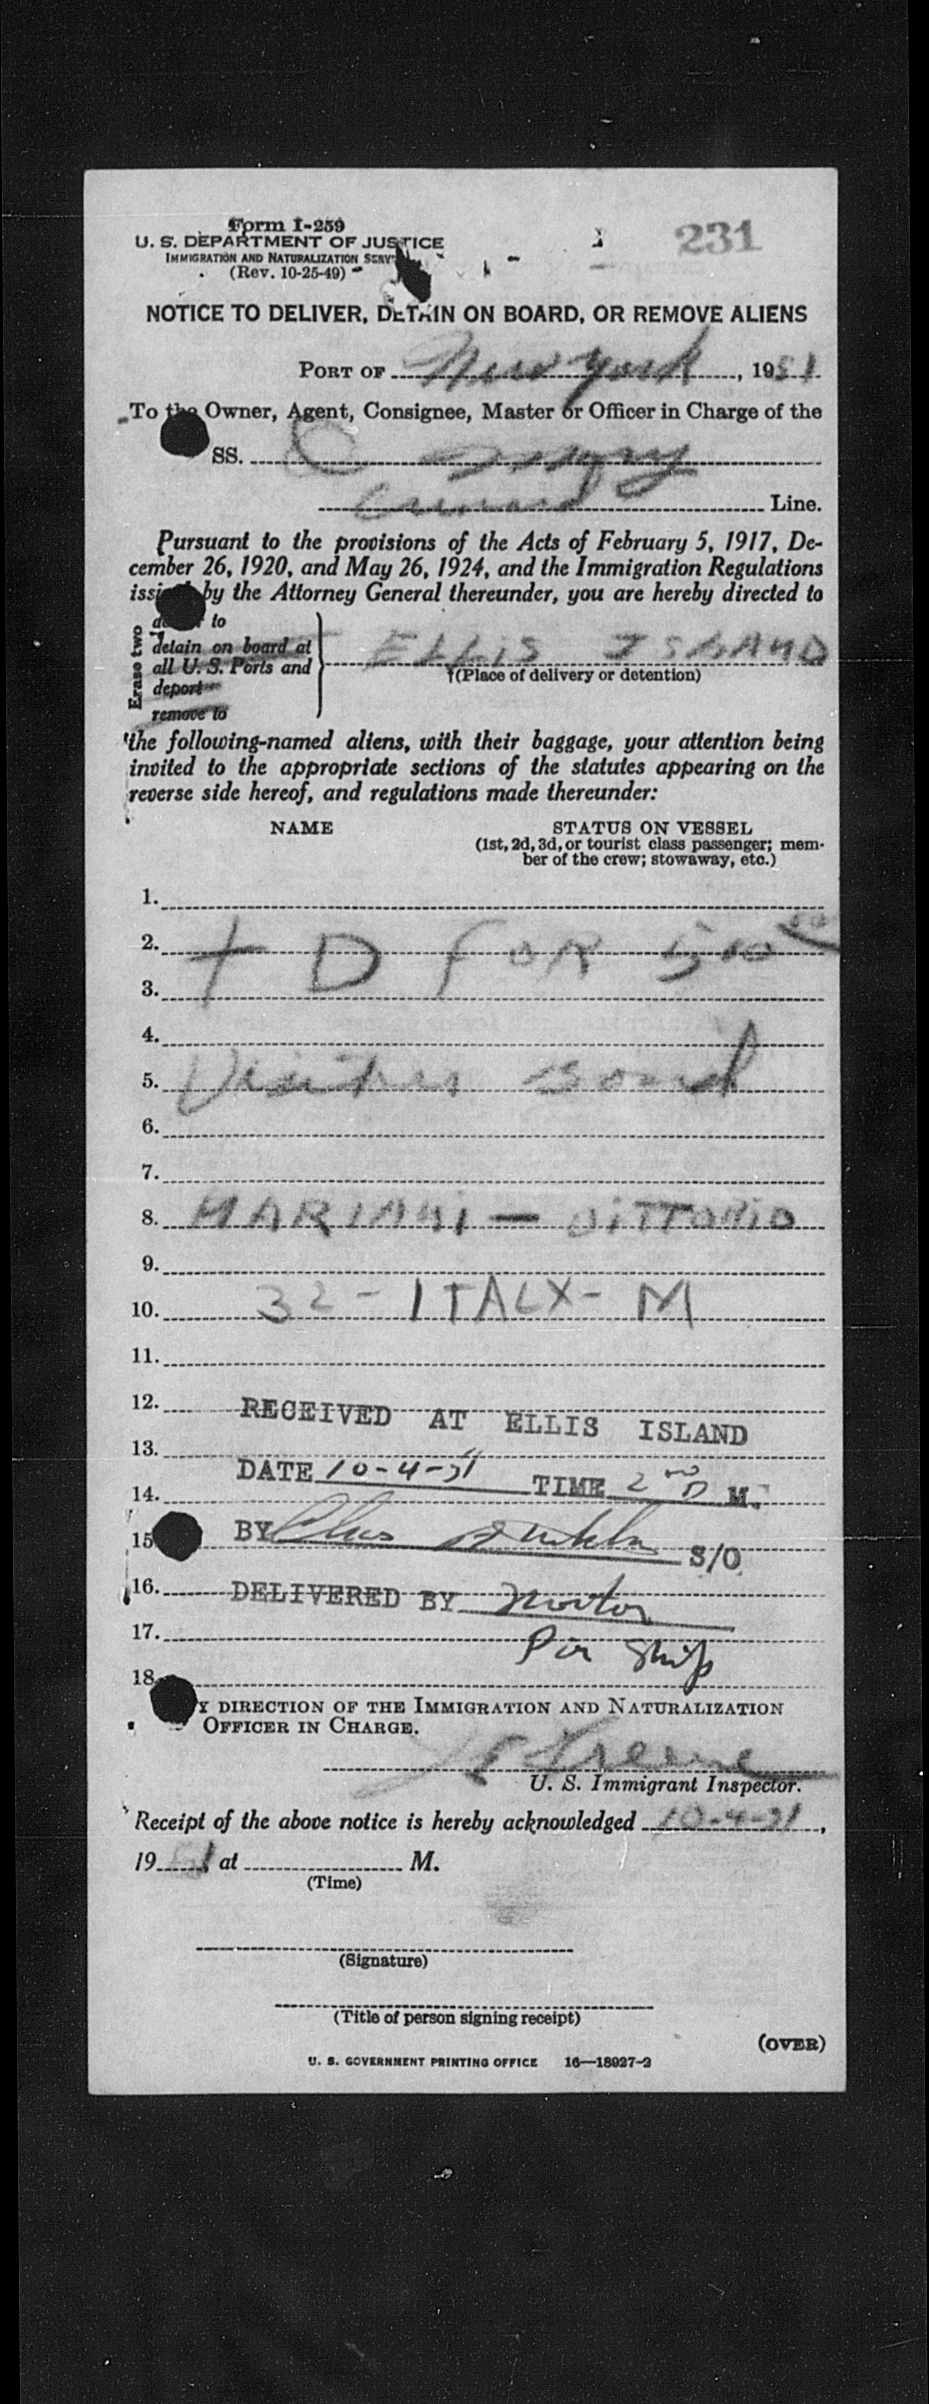 Form I-259
231
U. S. DEPARTMENT OF JUSTICE
IMMIGRATION AND NATURALIZATION SERV
(Rev. 10-25-49)
NOTICE TO DELIVER, DETAIN ON BOARD, OR REMOVE ALIENS
PORT OF New York, 1951
To the Owner, Agent, Consignee, Master or Officer in Charge of the
SS. Q Mary
Cunard Line.
Pursuant to the provisions of the Acts of February 5, 1917, De-
cember 26, 1920, and May 26, 1924, and the Immigration Regulations
issued by the Attorney General thereunder, you are hereby directed to
Erase two
to
detain on board at
all U. S. Ports and
deport
remove to
ELLIS ISLAND
†(Place of delivery or detention)
the following-named aliens, with their baggage, your attention being
invited to the appropriate sections of the statutes appearing on the
reverse side hereof, and regulations made thereunder:
NAME STATUS ON VESSEL
(1st, 2d, 3d, or tourist class passenger; mem-
ber of the crew; stowaway, etc.)
1.
2. + D FOR 500 00
3.
4.
5. Visitors Bond
6.
7.
8. MARIANI - VITTORIO
9.
10. 32 - ITALY - M
11.
12. RECEIVED AT ELLIS ISLAND
13.
DATE 10-4-51 TIME 2 M.
14.
15 BY Chas S/O
16. DELIVERED BY Norton
17.
Per Ship
18
Y DIRECTION OF THE IMMIGRATION AND NATURALIZATION
OFFICER IN CHARGE.
Greene
U. S. Immigrant Inspector.
Receipt of the above notice is hereby acknowledged 10-4-51,
1951, at M.
(Time)
(Signature)
(Title of person signing receipt)
(OVER)
U. S. GOVERNMENT PRINTING OFFICE 16—18927-2